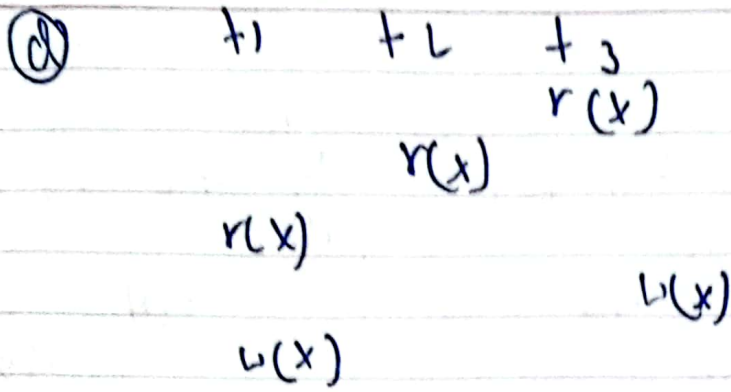 d t1 t2 t3
r(x)
r(x)
r(x)
w(x)
w(x)